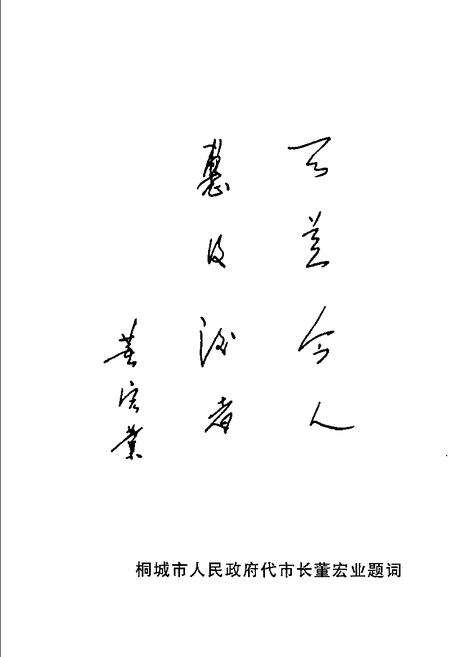 有益今人
惠及後者
董宏業
桐城市人民政府代市长董宏业题词